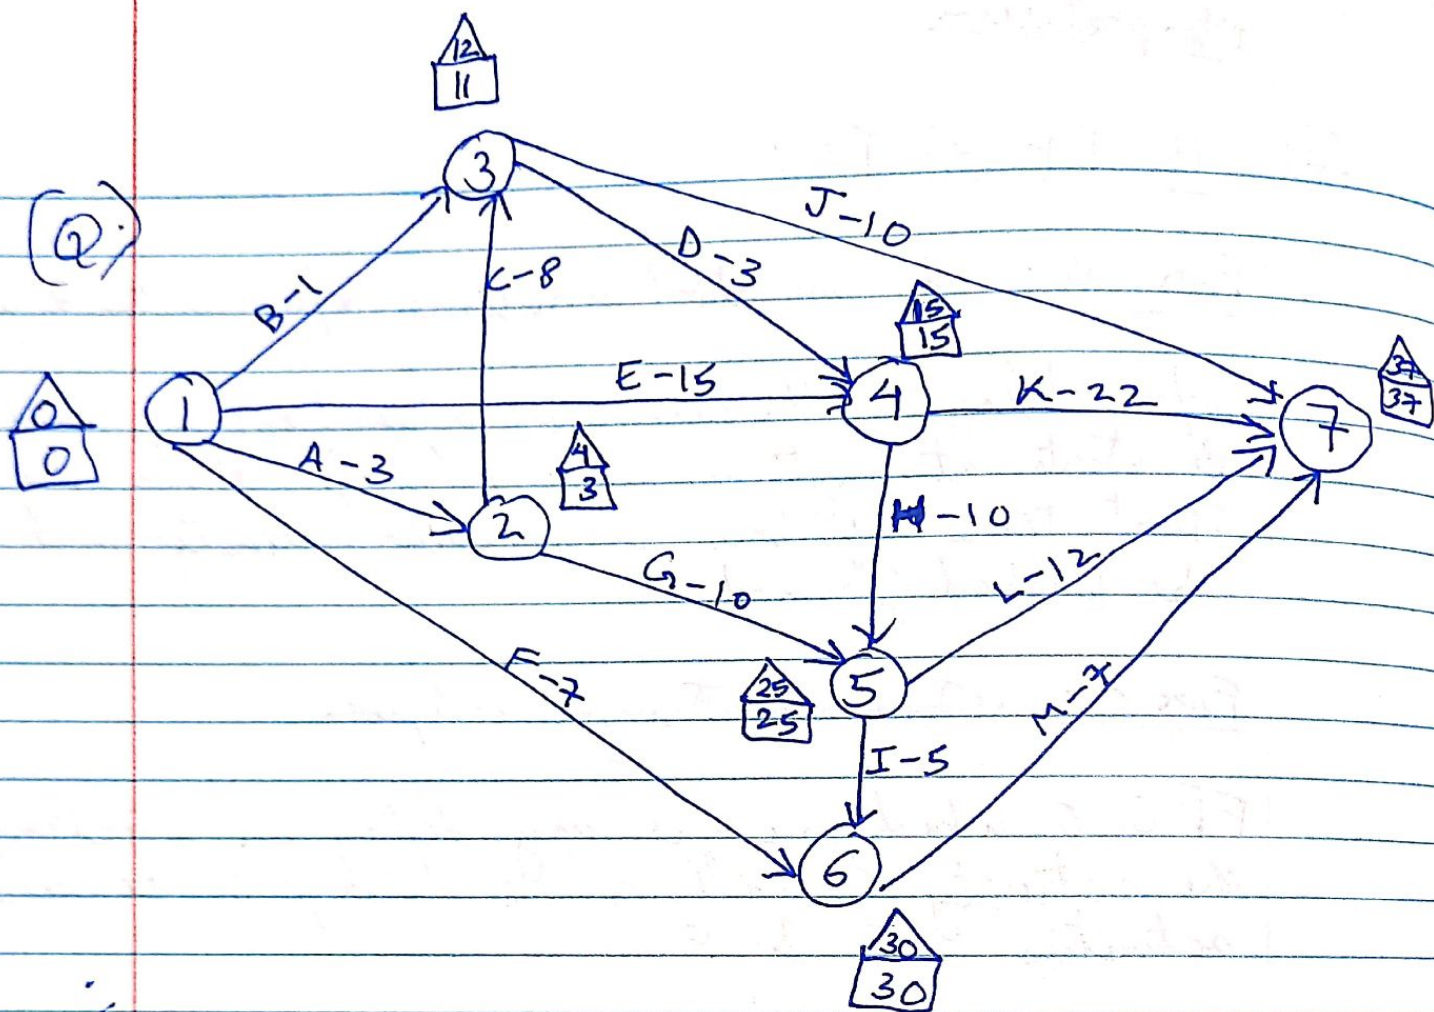 12
11
3
(Q.)
J-10
D-3
C-8
B-1
15
15
E-15
4
K-22
37
37
7
0
0
1
A-3
4
3
2
H-10
G-10
L-12
F-7
25
25
5
M-7
I-5
6
30
30